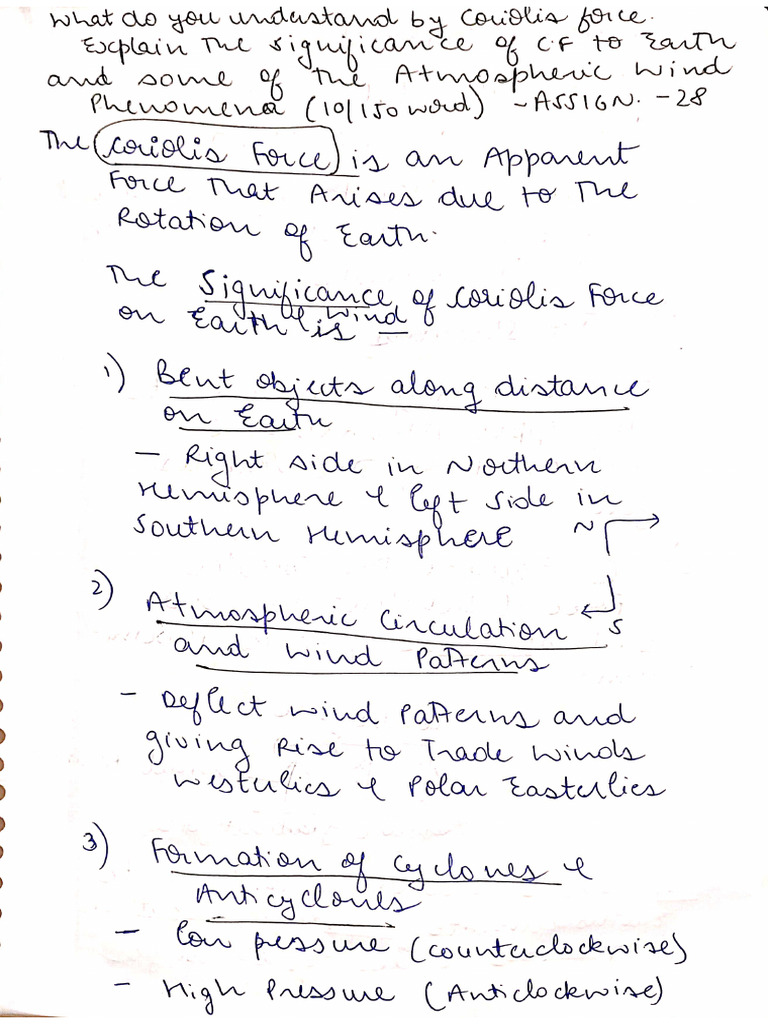 What do you understand by Coriolis force.
Explain the significance of C.F to Earth
and some of the Atmospheric Wind
Phenomena (10/150 word) - ASSIGN. - 28
The Coriolis Force is an Apparent
Force That Arises due to The
Rotation of Earth.
The Significance of Coriolis Force
on Earth & Wind is —
1) Bent objects along distance
on Earth
- Right side in Northern
Hemisphere & left side in
Southern Hemisphere
N
S
2) Atmospheric Circulation
and Wind Patterns
- Deflect wind Patterns and
giving Rise to Trade Winds
Westerlies & Polar Easterlies
3) Formation of Cyclones &
Anticyclones
- Low pressure (Counterclockwise)
- High Pressure (Anticlockwise)